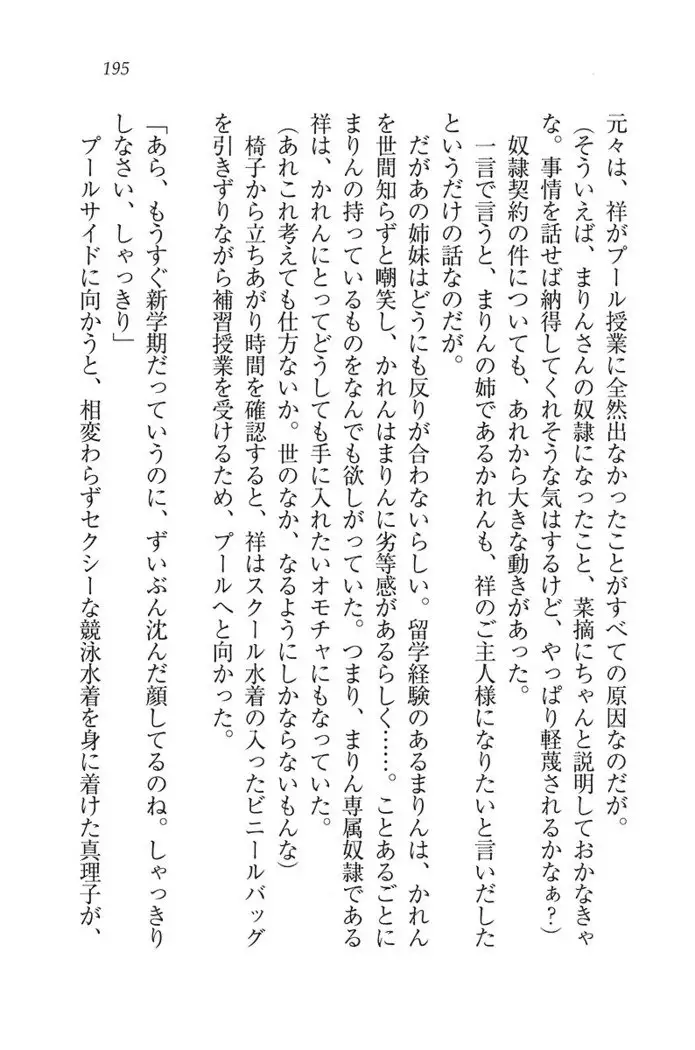 195
元々は、祥がプール授業に全然出なかったことがすべての原因なのだが。
(そういえば、まりんさんの奴隷になったこと、菜摘にちゃんと説明しておかなきゃ
な。事情を話せば納得してくれそうな気はするけど、やっぱり軽蔑されるかなぁ?)
奴隷契約の件についても、あれから大きな動きがあった。
一言で言うと、まりんの姉であるかれんも、祥のご主人様になりたいと言いだした
というだけの話なのだが。
だがあの姉妹はどうにも反りが合わないらしい。留学経験のあるまりんは、かれん
を世間知らずと嘲笑し、かれんはまりんに劣等感があるらしく……。ことあるごとに
まりんの持っているものをなんでも欲しがっていた。つまり、まりん専属奴隷である
祥は、かれんにとってどうしても手に入れたいオモチャにもなっていた。
(あれこれ考えても仕方ないか。世のなか、なるようにしかならないもんな)
椅子から立ちあがり時間を確認すると、祥はスクール水着の入ったビニールバッグ
を引きずりながら補習授業を受けるため、プールへと向かった。
「あら、もうすぐ新学期だっていうのに、ずいぶん沈んだ顔してるのね。しゃっきり
しなさい、しゃっきり」
プールサイドに向かうと、相変わらずセクシーな競泳水着を身に着けた真理子が、